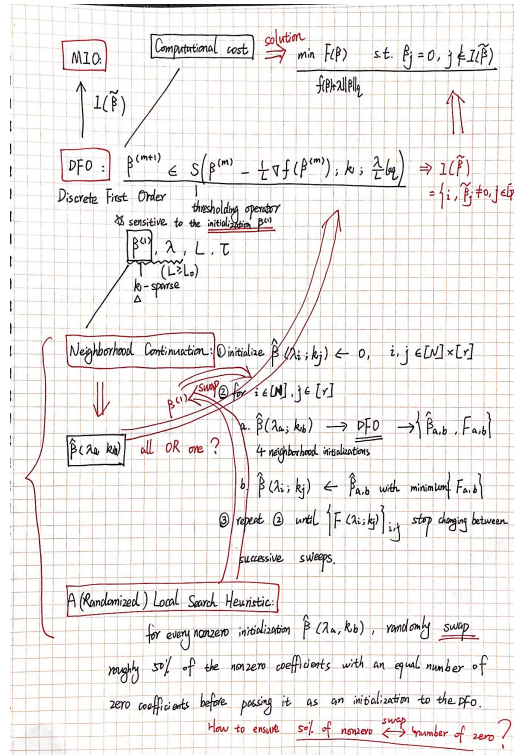 MIO:
Computational cost
solution ⇒ min F(β) s.t. βj = 0, j ∉ I(β̃)
f(β)+λ||β||q
↑ I(β̃)
DFO: β^(m+1) ∈ S(β^(m) - 1/L ∇f(β^(m)); k; λ/L ℓq) ⇒ I(β̃)
Discrete First Order
thresholding operator
= {i, β̃j ≠ 0, j ∈ [p
☆ sensitive to the initialization β^(1)
β^(1), λ, L, τ
(L≥L₀)
k-sparse
Δ
Neighborhood Continuation: ① initialize β̂(λi; kj) ← 0, i,j ∈ [N]×[r]
β^(1) swap ② for i∈[N], j∈[r]
β̂(λa, kb) all OR one ?
a. β̂(λi; kj) → DFO → {β̂a,b, Fa,b}
4 neighborhood initializations
b. β̂(λi; kj) ← β̂a,b with minimum{Fa,b}
③ repeat ② until {F(λi; kj)}i,j stop changing between
successive sweeps.
A (Randomized) Local Search Heuristic:
for every nonzero initialization β̂(λa, kb), randomly swap
roughly 50% of the nonzero coefficients with an equal number of
zero coefficients before passing it as an initialization to the DFO.
How to ensure 50% of nonzero ⟷ swap number of zero ?